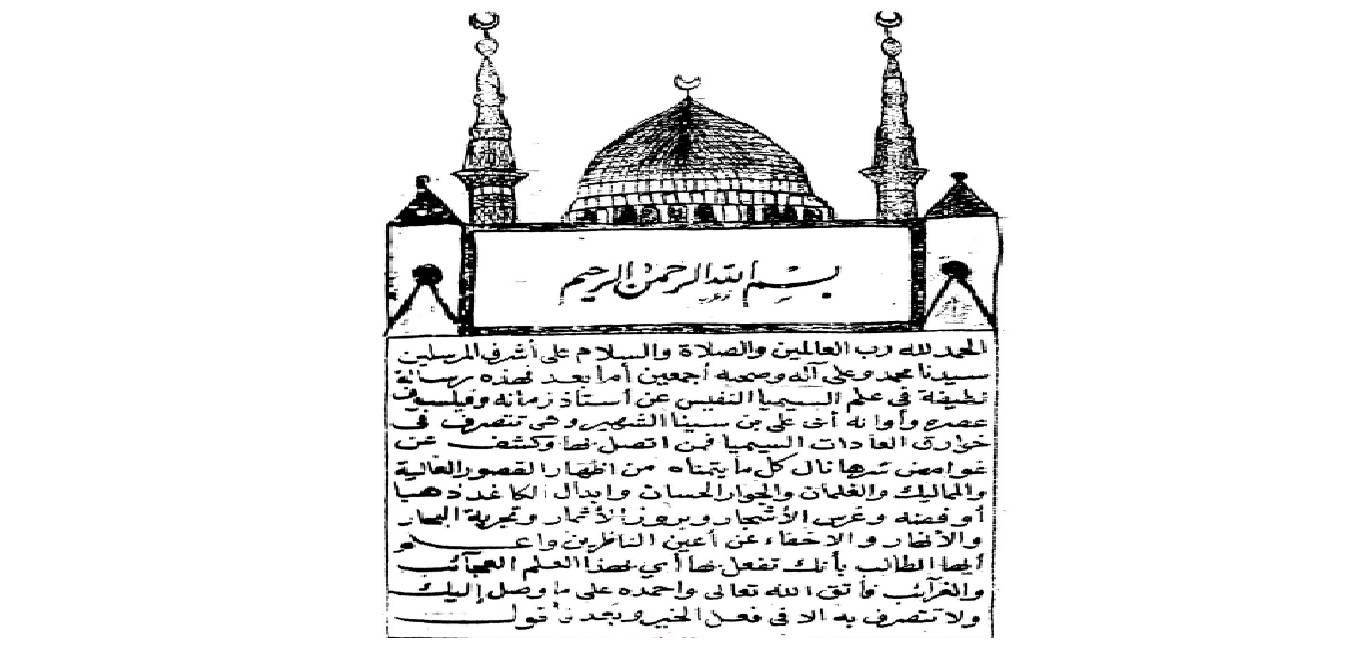 بسم الله الرحمن الرحيم
الحمد لله رب العالمين والصلاة والسلام على أشرف المرسلين
سيدنا محمد وعلى آله وصحبه أجمعين أما بعد فهذه رسالة
نظيفة في علم السيميا النفيس عن أستاذ زمانه وفيلسوف
عصره وأوانه أبى على بن سينا الشهير وهى تتصرف فى
خوارق العادات السيميا فمن اتصل بها وكشف عن
غوامض سرها نال كل ما يتمناه من اظهار القصور العالية
والمماليك والغلمان والجوار الحسان وابدال الكاغد ذهبا
أو فضه وغرس الأشجار وبروز الأثمار وتجرية البحار
والأنهار والاخفاء عن أعين الناظرين واعلم
أيها الطالب بأنك تفعل بها أي بهذا العلم العجائب
والغرآئب فأتق الله تعالى واحمده على ما وصل إليك
ولا تتصرف به الا في فعل الخير وبعد فأقول